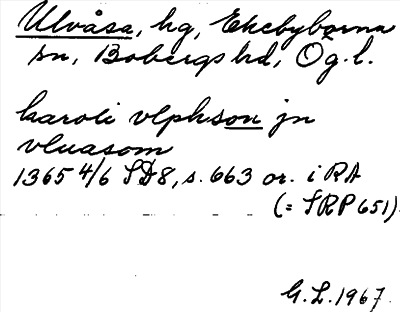 Ulvåsa, hg, Ekebyborna
sn, Bobergs hd, Ög.l.
karoli vlphson jn
vluasom
1365 4/6 SD8, s. 663 or. i RA
(= SRP 651).
G.L. 1967.